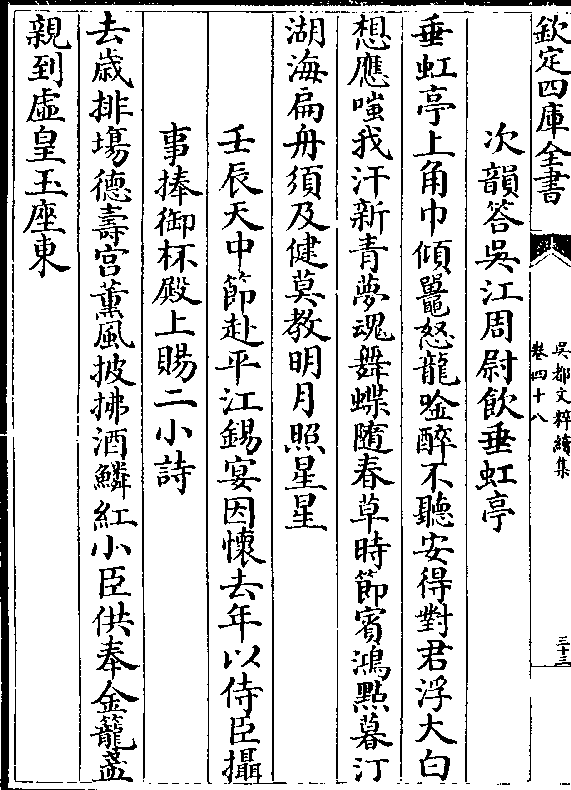 欽定四庫全書
吳都文粹續集
卷四十八
三十三
次韻答吳江周尉飲垂虹亭
垂虹亭上角巾傾鼉怒龍唫醉不聽安得對君浮大白
想應嗤我汗新青夢魂舞蝶隨春草時節賓鴻點暮汀
湖海扁舟須及健莫教明月照星星
壬辰天中節赴平江錫宴因懷去年以侍臣攝
事捧御杯殿上賜二小詩
去歳排場德壽宮薰風披拂酒鱗紅小臣供奉金籠盞
親到虛皇玉座東